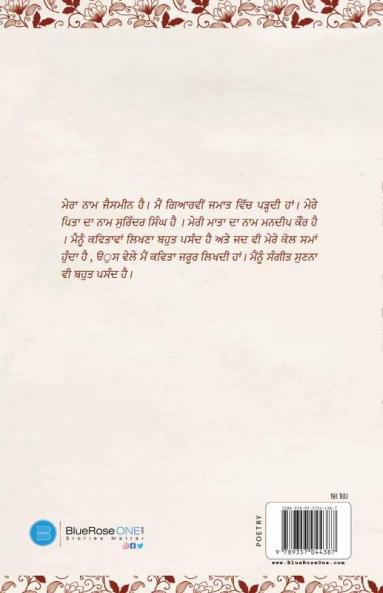 ਮੇਰਾ ਨਾਮ ਜੈਸਮੀਨ ਹੈ। ਮੈਂ ਗਿਆਰਵੀਂ ਜਮਾਤ ਵਿੱਚ ਪੜ੍ਹਦੀ ਹਾਂ। ਮੇਰੇ
ਪਿਤਾ ਦਾ ਨਾਮ ਸੁਰਿੰਦਰ ਸਿੰਘ ਹੈ । ਮੇਰੀ ਮਾਤਾ ਦਾ ਨਾਮ ਮਨਦੀਪ ਕੌਰ ਹੈ
। ਮੈਨੂੰ ਕਵਿਤਾਵਾਂ ਲਿਖਣਾ ਬਹੁਤ ਪਸੰਦ ਹੈ ਅਤੇ ਜਦ ਵੀ ਮੇਰੇ ਕੋਲ ਸਮਾਂ
ਹੁੰਦਾ ਹੈ , ੳੁਸ ਵੇਲੇ ਮੈਂ ਕਵਿਤਾ ਜਰੂਰ ਲਿਖਦੀ ਹਾਂ। ਮੈਨੂੰ ਸੰਗੀਤ ਸੁਣਨਾ
ਵੀ ਬਹੁਤ ਪਸੰਦ ਹੈ।
BlueRose ONE
Stories Matter
POETRY
ISBN 978-93-5704-438-7
9 789357 044387
www.BlueRoseOne.com